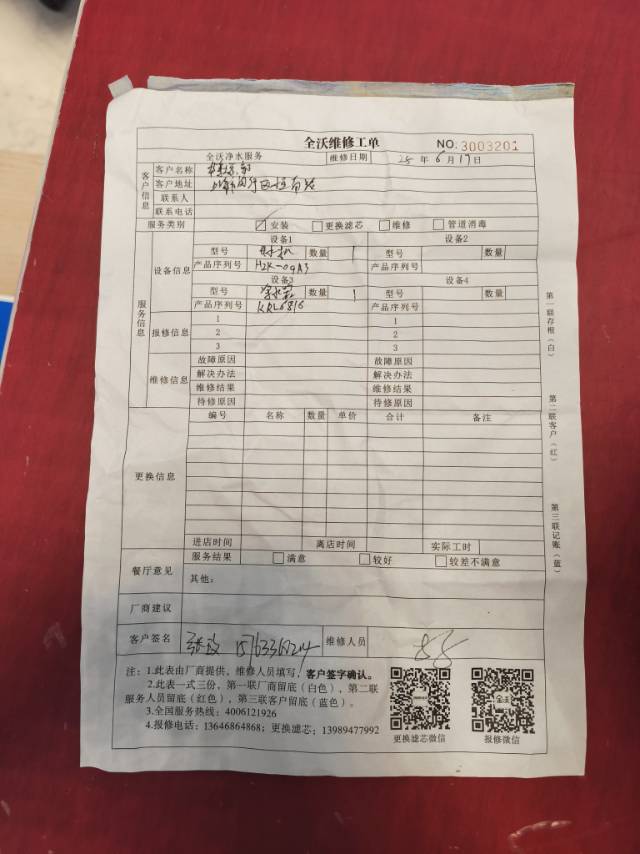 全沃维修工单
NO. 3003201
全沃净水服务 维修日期 25 年 6 月 17 日
客户信息
客户名称
客户地址
联系人
联系电话
服务类别 安装 更换滤芯 维修 管道消毒
服务信息
设备信息
设备1 设备2
型号 数量 1 型号 数量
产品序列号 产品序列号
设备3 设备4
型号 净水器 数量 1 型号 数量
产品序列号 KRL6816 产品序列号
报修信息
1 1
2 2
3 3
维修信息
故障原因 故障原因
解决办法 解决办法
维修结果 维修结果
待修原因 待修原因
更换信息
编号 名称 数量 单价 合计 备注
进店时间 离店时间 实际工时
餐厅意见
服务结果 满意 较好 较差不满意
其他：
厂商建议
客户签名 维修人员
注：1.此表由厂商提供，维修人员填写，客户签字确认。
2.此表一式三份，第一联厂商留底（白色），第二联
服务人员留底（红色），第三联客户留底（蓝色）。
3.全国服务热线：4006121926
4.报修电话：13646864868；更换滤芯：13989477992
更换滤芯微信 报修微信
第一联存根（白）
第二联客户（红）
第三联记账（蓝）